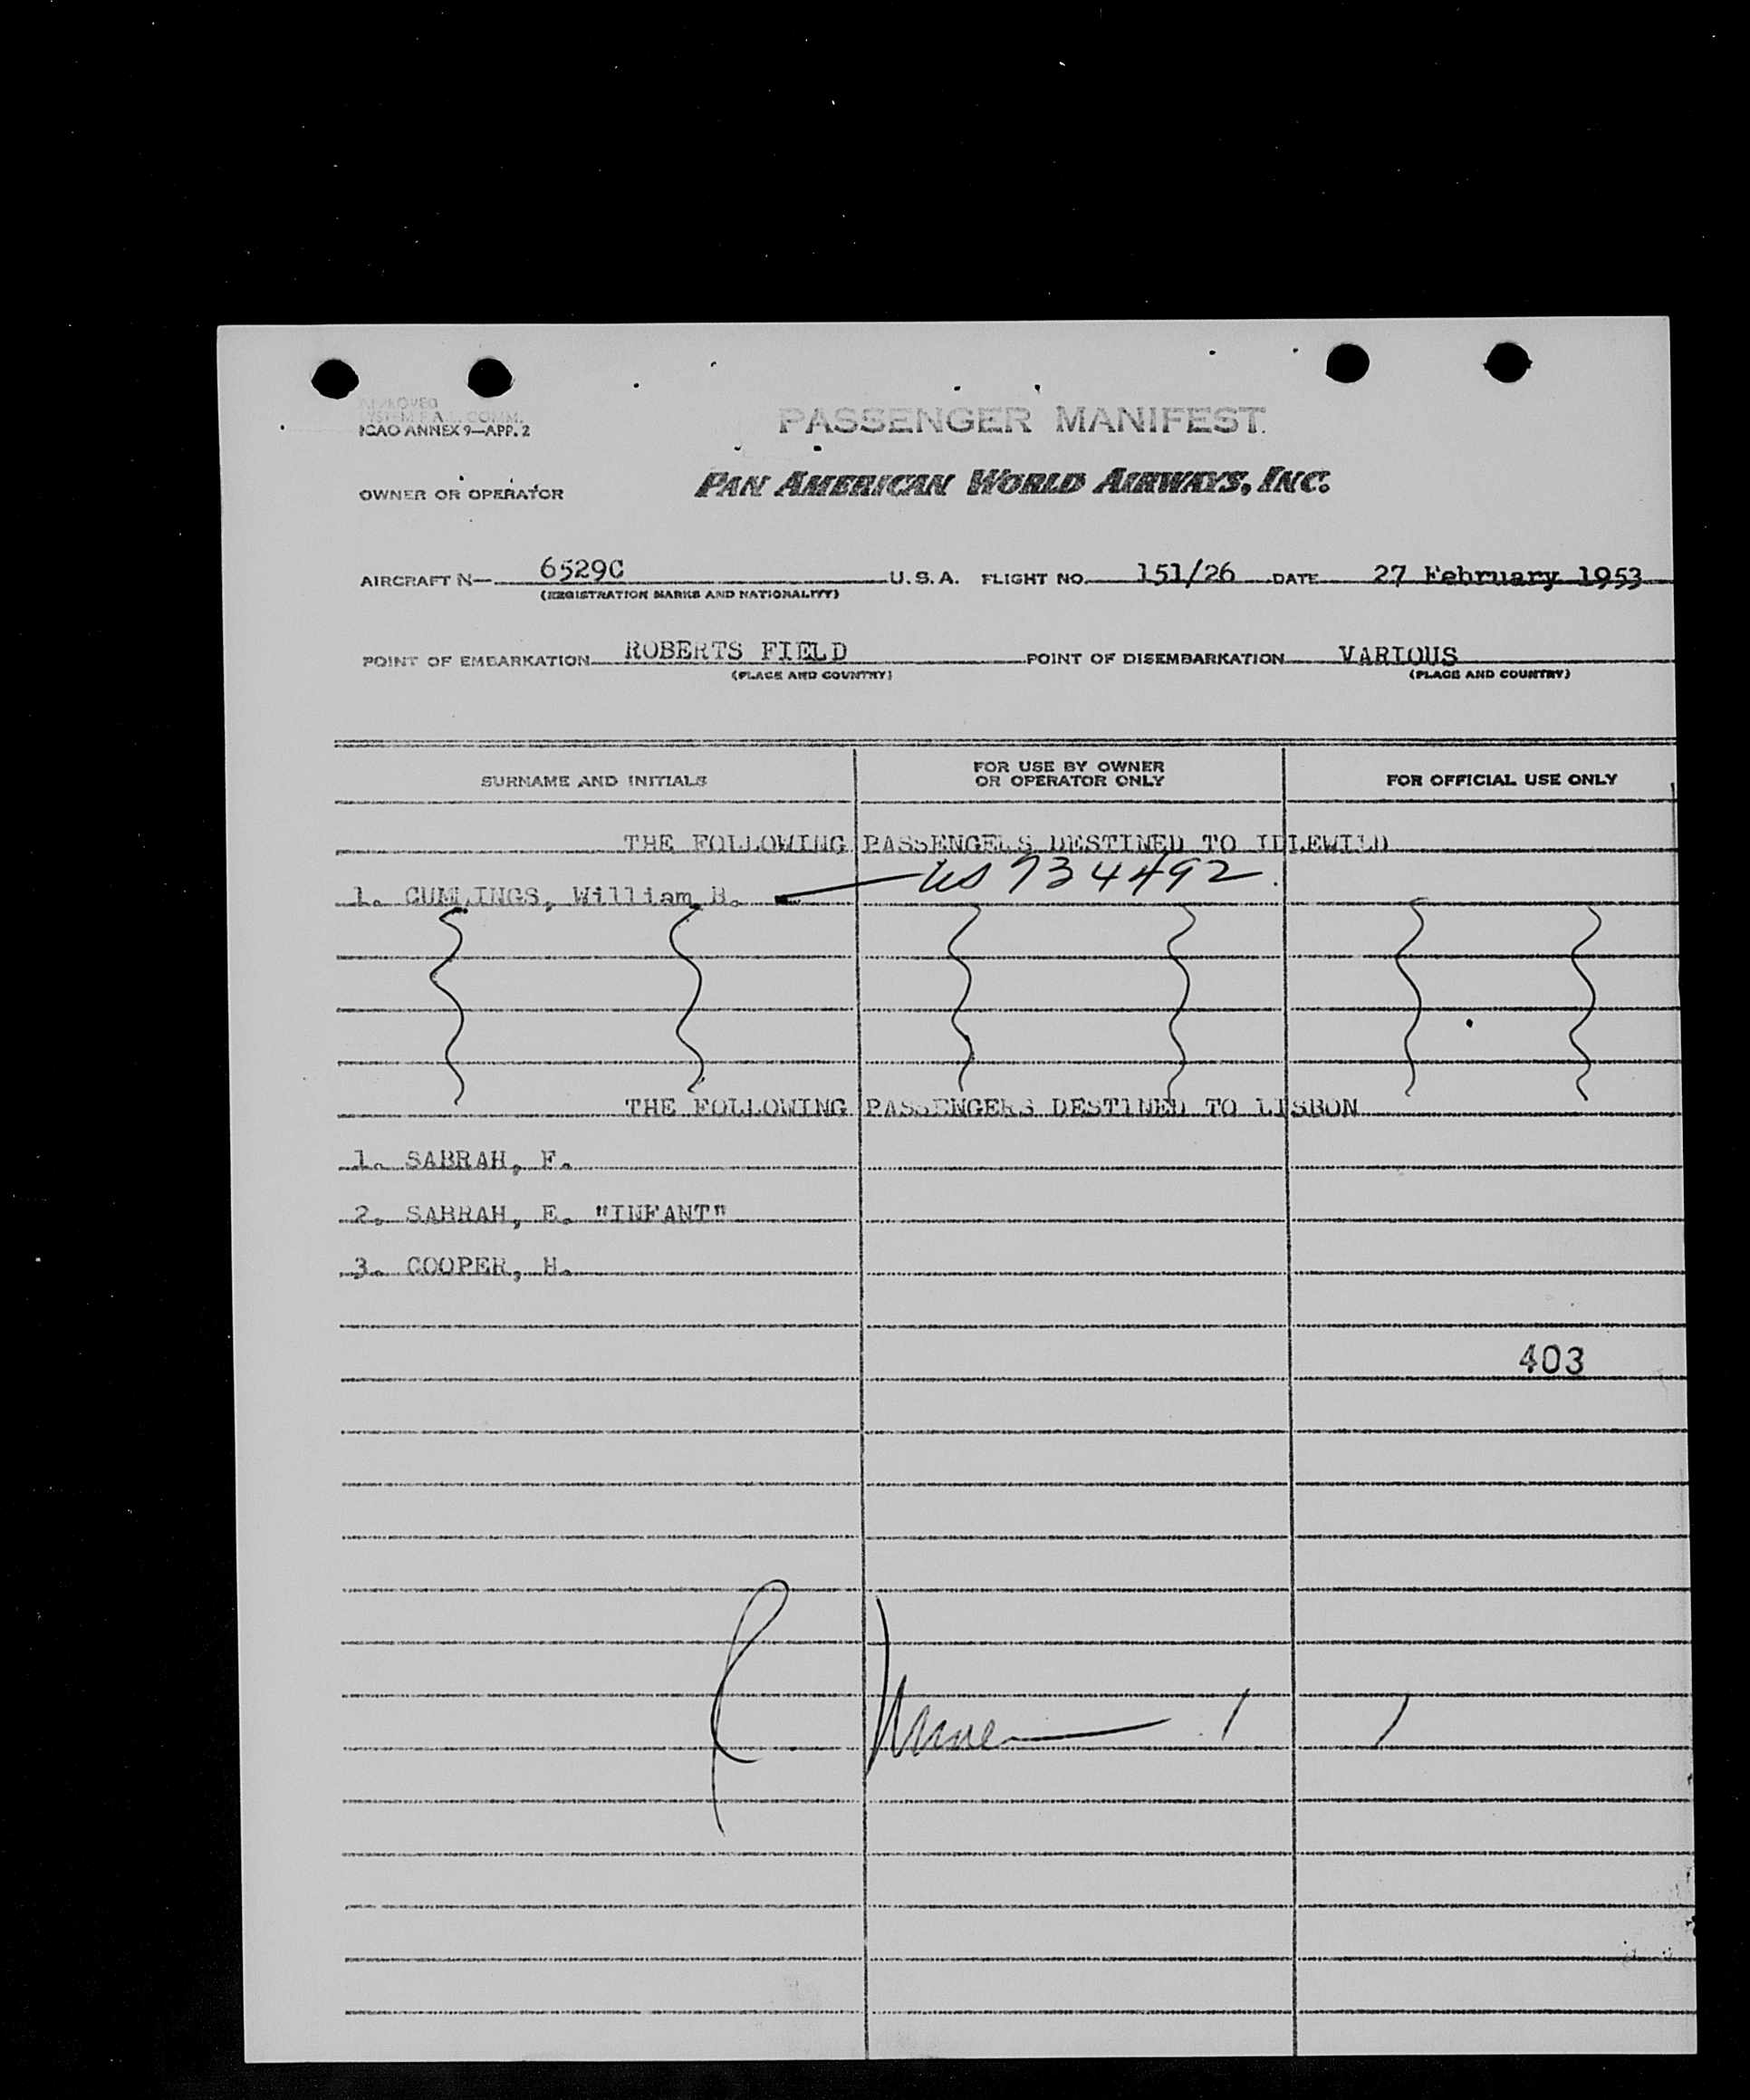 APPROVED
SYSTEM F.A.L. COMM.
ICAO ANNEX 9—APP. 2
PASSENGER MANIFEST
OWNER OR OPERATOR PAN AMERICAN WORLD AIRWAYS, INC.
AIRCRAFT N— 6529C U.S.A. FLIGHT NO. 151/26 DATE 27 February 1953
(REGISTRATION MARKS AND NATIONALITY)
POINT OF EMBARKATION ROBERTS FIELD POINT OF DISEMBARKATION VARIOUS
(PLACE AND COUNTRY) (PLACE AND COUNTRY)
SURNAME AND INITIALS FOR USE BY OWNER OR OPERATOR ONLY FOR OFFICIAL USE ONLY
THE FOLLOWING PASSENGERS DESTINED TO IDLEWILD
1. CUMMINGS, William B. US 734492.
THE FOLLOWING PASSENGERS DESTINED TO LISBON
1. SABRAH, F.
2. SABRAH, E. "INFANT"
3. COOPER, H.
403